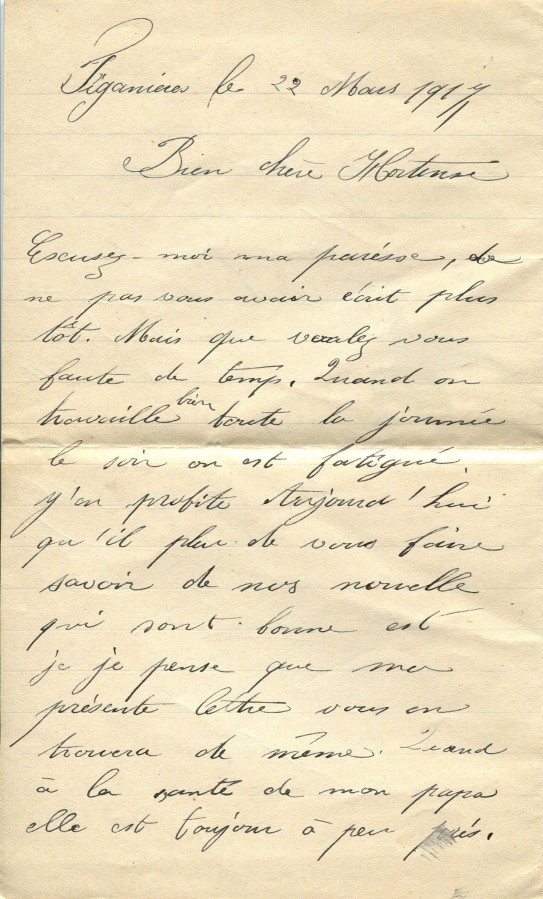 Figanières le 22 Mars 1917
Bien chère Hortense
Escusez-moi ma parésse, de
ne pas vous avoir écrit plus
tôt. Mais que voulez vous
faute de temp. Quand on
travaille bien toute la journée
le soir on est fatigué.
y'en profite Aujourd'hui
qu'il plu de vous faire
savoir de nos nouvelle
qui sont bonne est
je je pense que ma
présente lettre vous en
trouvera de même. Quand
à la santé de mon papa
elle est toujour à peu près.